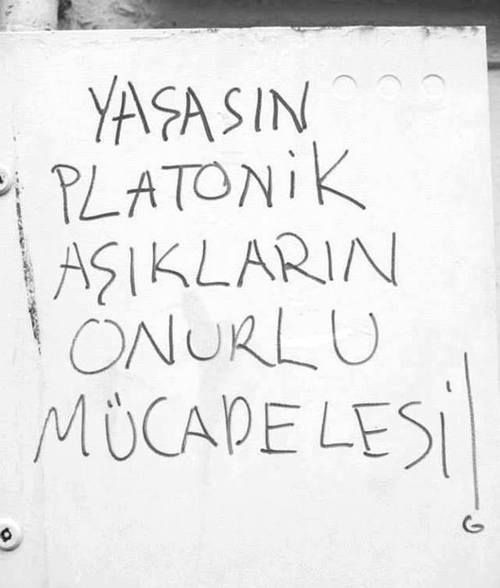 YAŞASIN
PLATONİK
AŞIKLARIN
ONURLU
MÜCADELESİ!
G